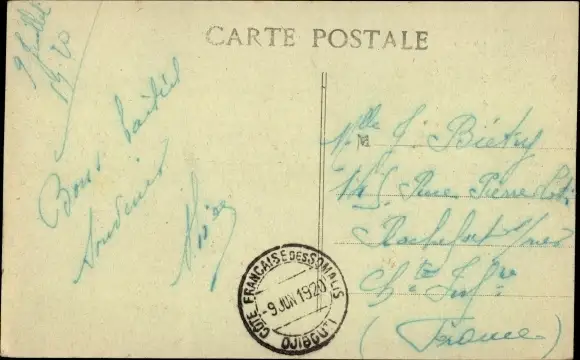 CARTE POSTALE
9 Juillet
1920
Bons
souvenirs
Mlle J. Biétry
145, Rue Pierre Loti
Rochefort s/mer
Chte Infre
(France)
CÔTE FRANÇAISE DES SOMALIS
-9 JUN 1920
DJIBOUTI